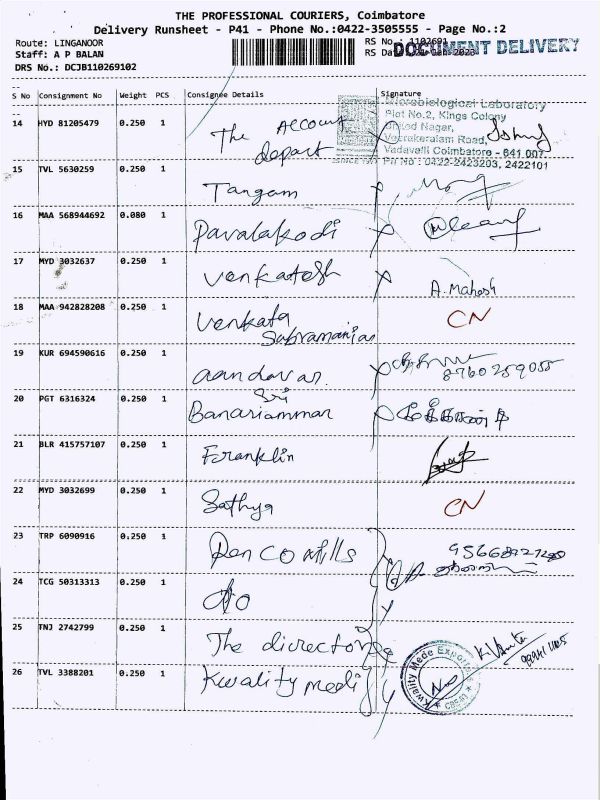 THE PROFESSIONAL COURIERS, Coimbatore
Delivery Runsheet - P41 - Phone No.:0422-3505555 - Page No.:2
Route: LINGANOOR
Staff: A P BALAN
DRS No.: DCJB110269102
RS No : 1102691
RS Da
DOCUMENT DELIVERY
S No Consignment No Weight PCS Consignee Details Signature
Microbiological Laboratory
Plot No.2, Kings Colony
Nagar,
Veerakeralam Road,
Vadavalli Coimbatore - 641 007.
PH No : 0422-2423203, 2422101
14 HYD 81205479 0.250 1 The Account depart
15 TVL 5630259 0.250 1 Tangam
16 MAA 568944692 0.080 1 Pavalakodi
17 MYD 3032637 0.250 1 Venkatesh A. Mahesh
18 MAA 942828208 0.250 1 Venkata Subramanian CN
19 KUR 694590616 0.250 1 aandavar 8760259055
20 PGT 6316324 0.250 1 Sri Banariamman
21 BLR 415757107 0.250 1 Franklin
22 MYD 3032699 0.250 1 Sathya CN
23 TRP 6090916 0.250 1 Mills
24 TCG 50313313 0.250 1 do
25 TNJ 2742799 0.250 1 The director
26 TVL 3388201 0.250 1 Kwality medi
Kwality Mede Exports